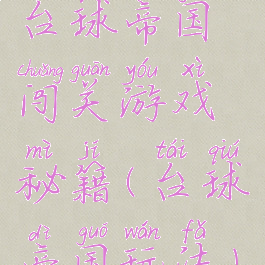 台球帝国
chuǎng guān yóu xì
闯关游戏
mì jí tái qiú
秘籍(台球
dì guó wán fǎ
帝国玩法)